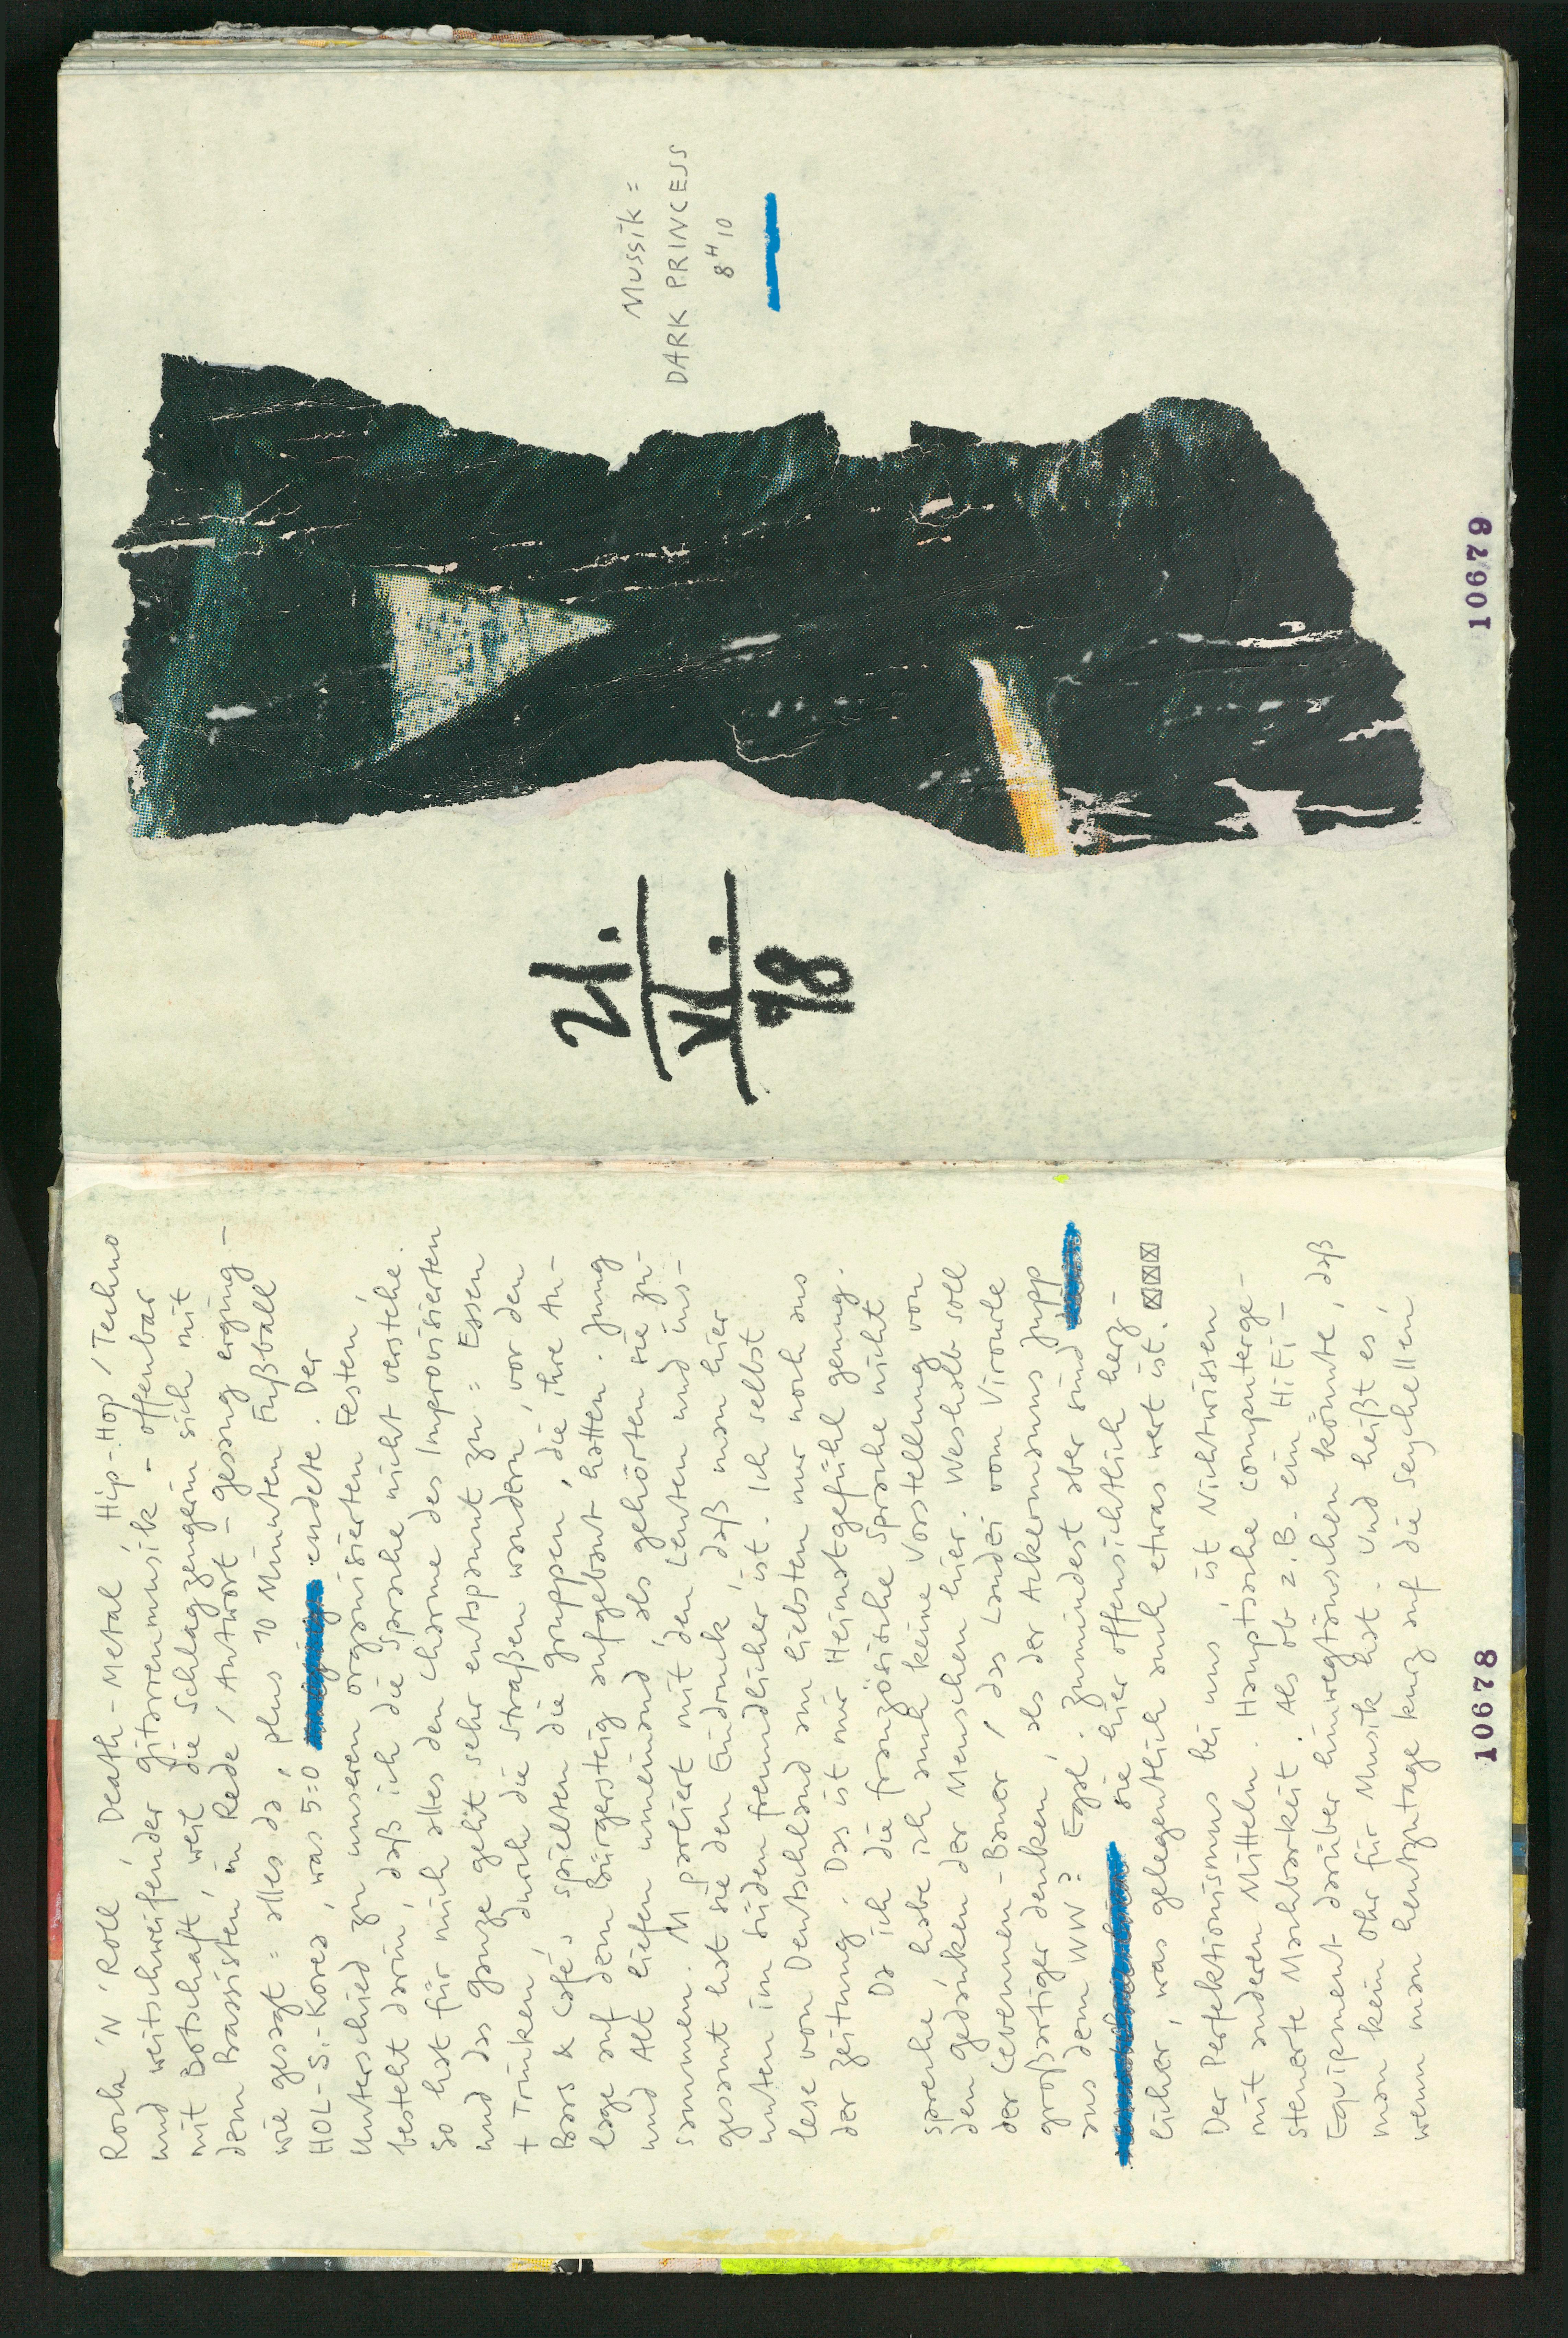 Rock 'N' Roll, Death-Metal, Hip-Hop / Techno
und weitschweifender Gitarrenmusik – offenbar
mit Botschaft, weil die Schlagzeugerin sich mit
dem Bassisten in Rede / Antwort – gesang erging –
wie gesagt = alles da, plus 10 Minuten Fußball
HOL-S.-Korea, was 5:0 endete. Der
Unterschied zu unseren organisierten Festen,
besteht darin, daß ich die Sprache nicht verstehe.
So hat für mich alles den Charme des Improvisierten
und das Ganze geht sehr entspannt zu = Essen
+ Trinken, durch die Straßen wandern, vor den
Bars & Cafés spielten die Gruppen, die ihre An-
lage auf dem Bürgersteig aufgebaut hatten. Jung
und Alt liefen umeinand, als gehörten sie zu-
sammen. M parliert mit den Leuten und ins-
gesamt hat sie den Eindruck, daß man hier
unten im Süden freundlicher ist. Ich selbst
lese von Deutschland am liebsten nur noch aus
der Zeitung. Das ist mir Heimatgefühl genug.
Da ich die französische Sprache nicht
spreche, habe ich auch keine Vorstellung von
den Gedanken der Menschen hier. Weshalb soll
der Cevennen-Bauer / das Landei vom Virourle
großartiger denken, als der Ackermanns Jupp
aus dem WW? Egal. Zumindest aber sind
sie hier offensichtlich herz-
licher, was gelegentlich auch etwas wert ist. ☒☒☒
Der Perfektionismus bei uns, ist Nichtwissen
mit anderen Mitteln. Hauptsache computerge-
steuerte Machbarkeit. Als ob z.B. ein HiFi-
Equipment darüber hinwegtäuschen könnte, daß
man kein Ohr für Musik hat. Und heißt es,
wenn man heutzutage kurz auf die Seychellen
10678
21.
VI.
98
Mussik =
DARK PRINCESS
8H10
10679